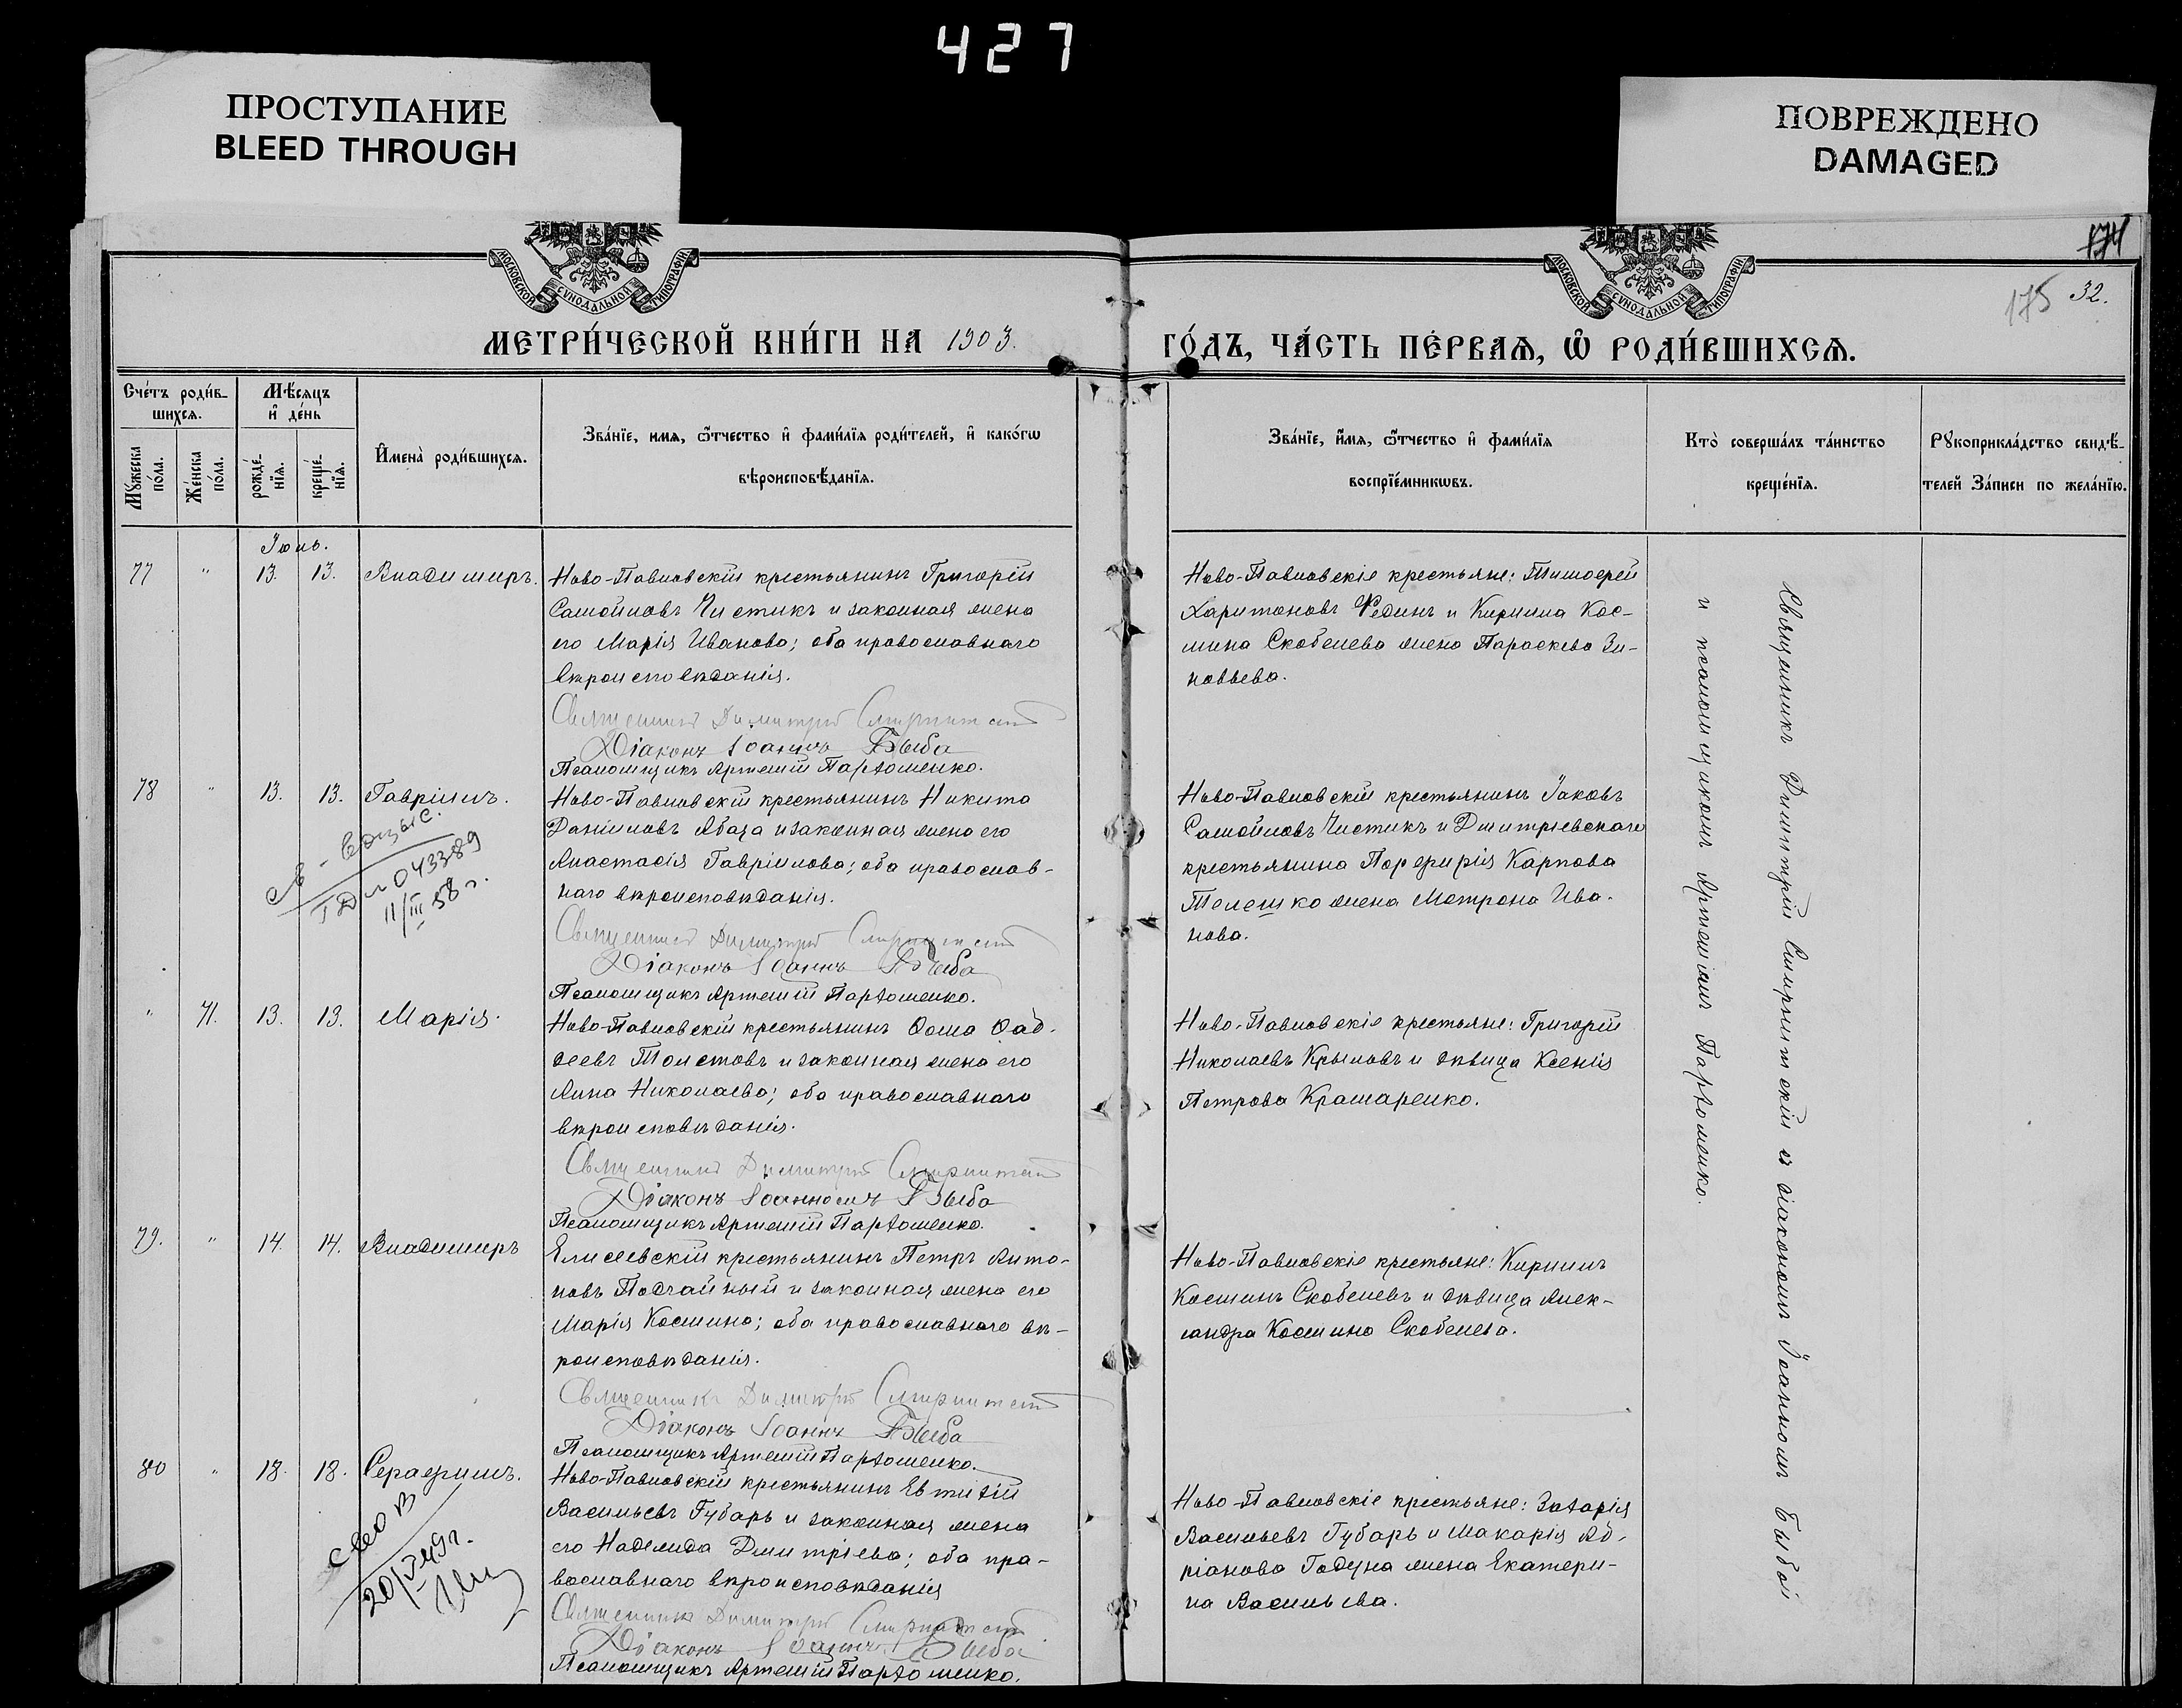 427
ПРОСТУПАНИЕ
BLEED THROUGH
ПОВРЕЖДЕНО
DAMAGED
174
175 32.
МОСКОВСКОЙ СѴНОДАЛЬНОЙ ТИПОГРАФІИ
МОСКОВСКОЙ СѴНОДАЛЬНОЙ ТИПОГРАФІИ
МЕТРИ́ЧЕСКОЙ КНИ́ГИ НА 1903. ГО́ДЪ, ЧА́СТЬ ПЕ́РВАѦ, Ѽ РОДИ́ВШИХСѦ.
Сче́тъ роди́в-
шихсѧ.
Мꙋ́жеска по́ла.
Же́нска по́ла.
Мѣ́сѧцъ и҆ де́нь
рожде́-нїѧ.
креще́-нїѧ.
И҆мена̀ роди́вшихсѧ.
Зва́нїе, имѧ, ѻ҆́тчество и҆ фами́лїѧ роди́телей, и҆ како́гѡ
вѣроисповѣ́данїѧ.
Зва́нїе, и҆́мѧ, ѻ҆́тчество и҆ фами́лїѧ
воспрїе́мникѡвъ.
Кто̀ соверша́лъ та́инство
креще́нїѧ.
Рꙋкоприкла́дство свидѣ́-
телей За́писи по жела́нїю.
Іюль.
77 " 13. 13. Владимиръ.
Ново-Павловскій крестьянинъ Григорій
Самойловъ Чистикъ и законная жена
его Марія Иванова; оба православнаго
вѣроисповѣданія.
Священникъ Димитрій Смирнитскій
Діаконъ Іоаннъ Быба
Псаломщикъ Артемій Пархоменко.
Ново-Павловскіе крестьяне: Тимоѳей
Харитоновъ Фединъ и Кирилла Кос-
мина Скобелева жена Параскева Зи-
новьева.
78 " 13. 13. Гавріилъ.
II/III 58 г.
Ново-Павловскій крестьянинъ Никита
Даніиловъ Абаза и законная жена его
Анастасія Гавріилова; оба православ-
наго вѣроисповѣданія.
Священникъ Димитрій Смирнитскій
Діаконъ Іоаннъ Быба
Псаломщикъ Артемій Пархоменко.
Ново-Павловскій крестьянинъ Іаковъ
Самойловъ Чистикъ и Дмитріевскаго
крестьянина Порфирія Карпова
Телешко жена Матрона Ива-
нова.
" 71. 13. 13. Марія.
Ново-Павловскій крестьянинъ Ѳома Ѳад-
деевъ Толстовъ и законная жена его
Анна Николаева; оба православнаго
вѣроисповѣданія.
Священникъ Димитрій Смирнитскій
Діаконъ Іоаннъ Быба
Псаломщикъ Артемій Пархоменко.
Ново-Павловскіе крестьяне: Григорій
Николаевъ Крыловъ и дѣвица Ксенія
Петрова Крамаренко.
79. " 14. 14. Владимиръ
Елисеевскій крестьянинъ Петръ Анто-
новъ Подчайный и законная жена его
Марія Космина; оба православнаго вѣ-
роисповѣданія.
Священникъ Димитрій Смирнитскій
Діаконъ Іоаннъ Быба
Псаломщикъ Артемій Пархоменко.
Ново-Павловскіе крестьяне: Кириллъ
Косминъ Скобелевъ и дѣвица Алек-
сандра Космина Скобелева.
80 " 18. 18. Серафимъ.
Ново-Павловскій крестьянинъ Евтихій
Васильевъ Губарь и законная жена
его Надежда Дмитріева; оба пра-
вославнаго вѣроисповѣданія
Священникъ Димитрій Смирнитскій
Діаконъ Іоаннъ Быба
Псаломщикъ Артемій Пархоменко.
Ново-Павловскіе крестьяне: Захарія
Васильевъ Губарь и Макарія Ад-
ріанова Годуна жена Екатери-
на Васильева.
Священникъ Димитрій Смирнитскій съ діакономъ Іоанномъ Быбой
и псаломщикомъ Артеміемъ Пархоменко.